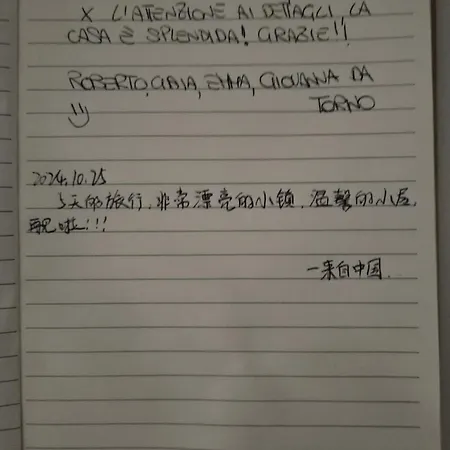 X L'ATTENZIONE AI DETTAGLI. LA
CASA È SPLENDIDA! GRAZIE!!
ROBERTO, GIADA, EMMA, GIOVANNA DA
TORNO
2024.10.25
3天的旅行,非常漂亮的小镇,温馨的小屋,
再见啦!!!
一来自中国